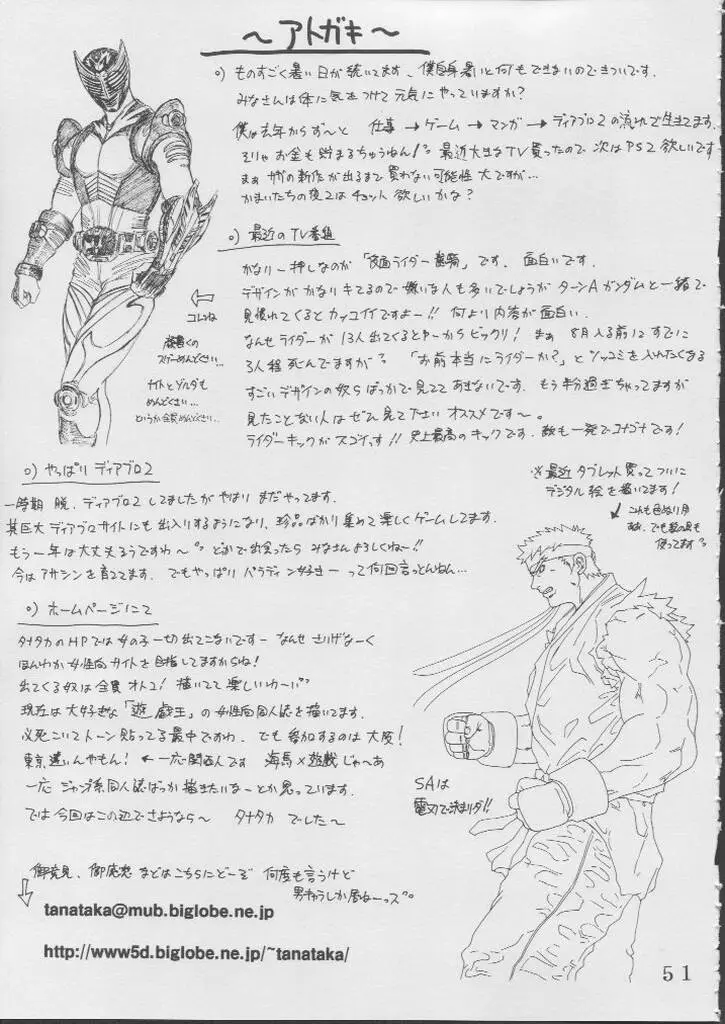 ～アトガキ～
o) ものすごく暑い日が続いてます、僕自身暑いと何もできないのできついです。
みなさんは体に気をつけて元気にやっていますか?
僕は去年からず～っと 仕事→ゲーム→マンガ→ディアブロ2の流れで生きてます。
そりゃお金も貯まるちゅうねん!。最近大きなTV買ったので次はPS2欲しいです
まぁ サガの新作が出るまで買わない可能性大ですが…
かまいたちの夜2はチョット欲しいかな?
o) 最近のTV番組
かなり一押しなのが「仮面ライダー龍騎」です。面白いです。
デザインがかなりキてるので嫌いな人も多いでしょうがターンAガンダムと一緒で
見慣れてくるとカッコイイですよー!! 何より内容が面白い。
なんせライダーが13人出てくるとゆーからビックリ! まぁ 8月入る前にすでに
3人程死んでますが。「お前本当にライダーか?」とツッコミを入れたくなる
すごいデザインの奴らばっかで見ててあきないです。もう半分過ぎちゃってますが
見たことない人はぜひ見て下さい オススメです～。
ライダーキックがスゴイっす!! 史上最高のキックです。敵も一発でコナゴナです!
⇦
コレはね
龍騎くの
スゲーめんどくさい…
ナイトとゾルダも
めんどくさい…
というか全員めんどくさい…
o) やっぱり ディアブロ2
一時期 脱、ディアブロ2 してましたがやはり まだやってます。
某巨大ディアブロサイトにも出入りするようになり、珍品ばかり集めて楽しくゲームしてます。
もう一年は大丈夫そうですわ～。どこかで出会ったら みなさんよろしくねー!!
今はアサシンを育ててます、でもやっぱり パラディン好きーって何回言っとんねん…
※最近タブレット買って ついに
デジタル絵を描いてます!
o) ホームページにて
タナタカのHPでは女の子一切出てこないですー なんせ さりげなーく
ほんわか女性向サイトを目指してますからね!
出てくる奴は全員オトコ! 描いてて楽しいわ～。
現在は大好きな「遊戯王」の女性向同人誌を描いてます。
必死こいてトーン貼ってる最中ですわ。でも参加するのは大阪!
東京遠いんやもん! ←一応関西人です 海馬×遊戯じゃ～あ
一応 ジャンプ系同人誌ばっか描きたいなーとか思っています。
では今回はこの辺でさようなら～ タナタカ でした～
SAは
電刃で決まりダ!!
御意見、御感想 などはこちらにどーぞ 何度も言うけど
男キャラしか居ねーっス。
tanataka@mub.biglobe.ne.jp
http://www5d.biglobe.ne.jp/~tanataka/
51